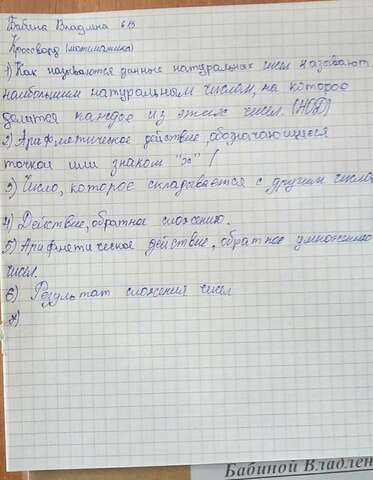 Бабина Владлина 6В
Кроссворд (математика)
1) Как называются данные натуральных чисел называют
наибольшим натуральным числом, на которое
делится каждое из этих чисел. (НОД)
2) Арифметическое действие, обозначающиеся
точкой или знаком "х" !
3) Число, которое складывается с другим числом
4) Действие, обратное сложению.
5) Арифметическое действие, обратное умножению
чисел.
6) Результат сложения чисел
7)
Бабиной Владлен